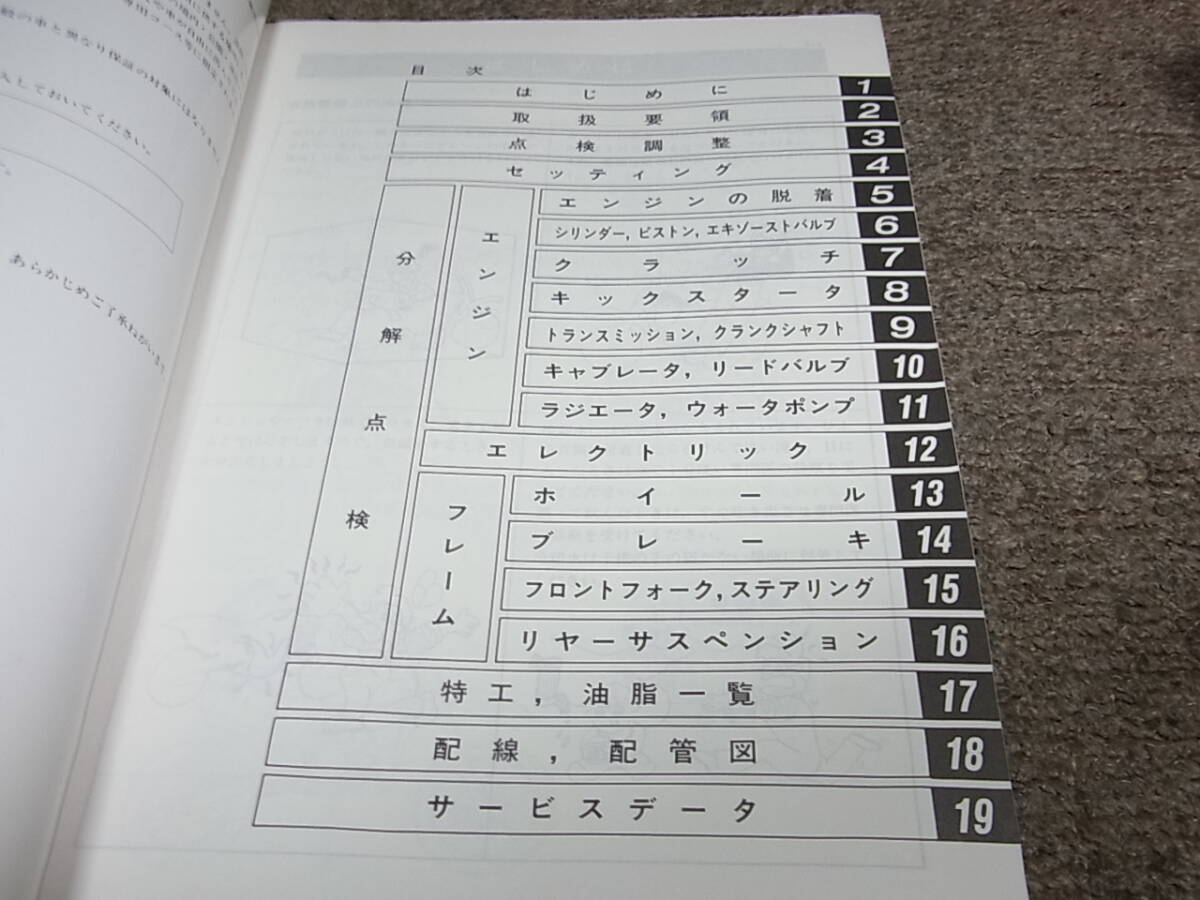 般の車と異なり保証の対象にはなりません。
入しておいてください。
あらかじめご了承ねがいます。
目 次
はじめに 1
取扱要領 2
点検調整 3
セッティング 4
分解点検
エンジン
エンジンの脱着 5
シリンダー, ピストン, エキゾーストバルブ 6
クラッチ 7
キックスタータ 8
トランスミッション, クランクシャフト 9
キャブレータ, リードバルブ 10
ラジエータ, ウォータポンプ 11
エレクトリック 12
フレーム
ホイール 13
ブレーキ 14
フロントフォーク, ステアリング 15
リヤーサスペンション 16
特工, 油脂一覧 17
配線, 配管図 18
サービスデータ 19